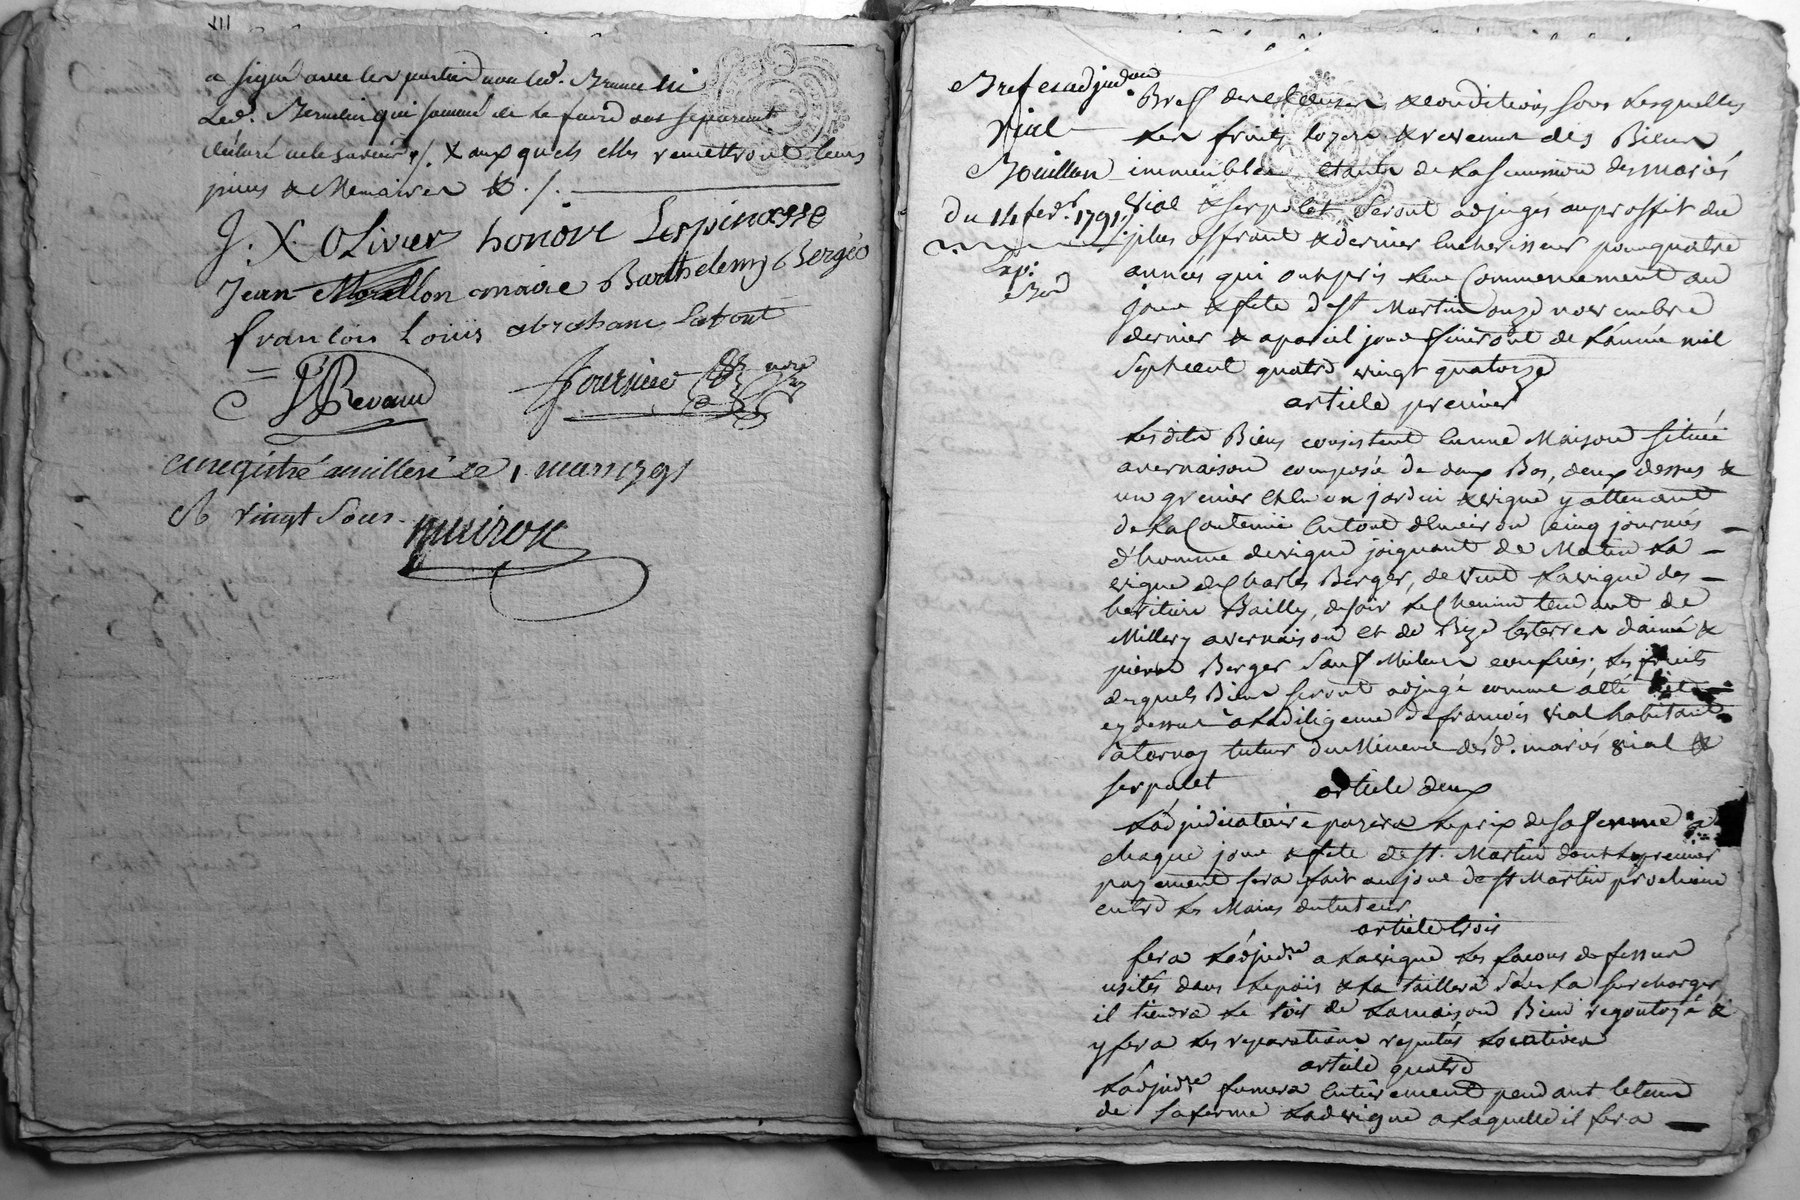 a signé avec les parties non led. Brun ni
Led. qui sommé de le faire ont séparément
déclaré ne le savoir ./. & aux quels elles remettront leurs
pieces & Memoires &. /.
J. X. Olivier honoré Lespinasse
Jean Morellon maire Barthelemy Bergeo
francois Louis abraham Lafont
Revaux Fournier nore
enregistré a milleri le 1. mars 1791
R vingt sous.
muiron
Bref et adjudon
Vial
Bouillon
du 14 fevr. 1791.
Exp.
Bref des clauses & conditions sous lesquelles
les fruits loyers & revenus des Biens
immeubles etants de la succession des mariés
Vial & serpolet seront adjugés au proffit du
plus offrant & dernier encherisseur pour quatre
années qui ont pris leur Commencement au
jour & fete de st Martin onze novembre
dernier & a pareil jour finiront de l'année mil
sept cent quatre vingt quatorze
article premier
Lesdits Biens consistent en une Maison située
a vernaison composée de deux Bas, deux dessus &
un grenier et en un jardin & vigne y attenant
de la Contenue en tout d'environ cinq journés
d'homme de vigne joignant de Matin la
vigne de Charles Berger, de vent la vigne des
heritiers Bailly, de soir le Chemin tendant de
Millery a vernaison et de Bize les terres d'aimé &
pierre Berger sauf Meilleurs confins; les fruits
desquels Biens seront adjugé comme a été dit
cy dessus a la diligence de francois vial habitant
a tornay tuteur du Mineur desd. mariés vial &
serpolet
article deux
L'adjudicataire payera le prix de sa ferme a
chaque jour & fete de st. Martin dont le premier
payement sera fait au jour de st Martin prochain
entre les Mains du tuteur
article trois
fera l'adjudre a la vigne les facons de fessure
usités dans le païs & la taillera sans la surcharger
il tiendra le toit de la maison Bien regoutoyé &
y fera les reparations reputés locatives
article quatre
L'adjudre fumera entierement pendant le tems
de sa ferme lad vigne a laquelle il fera